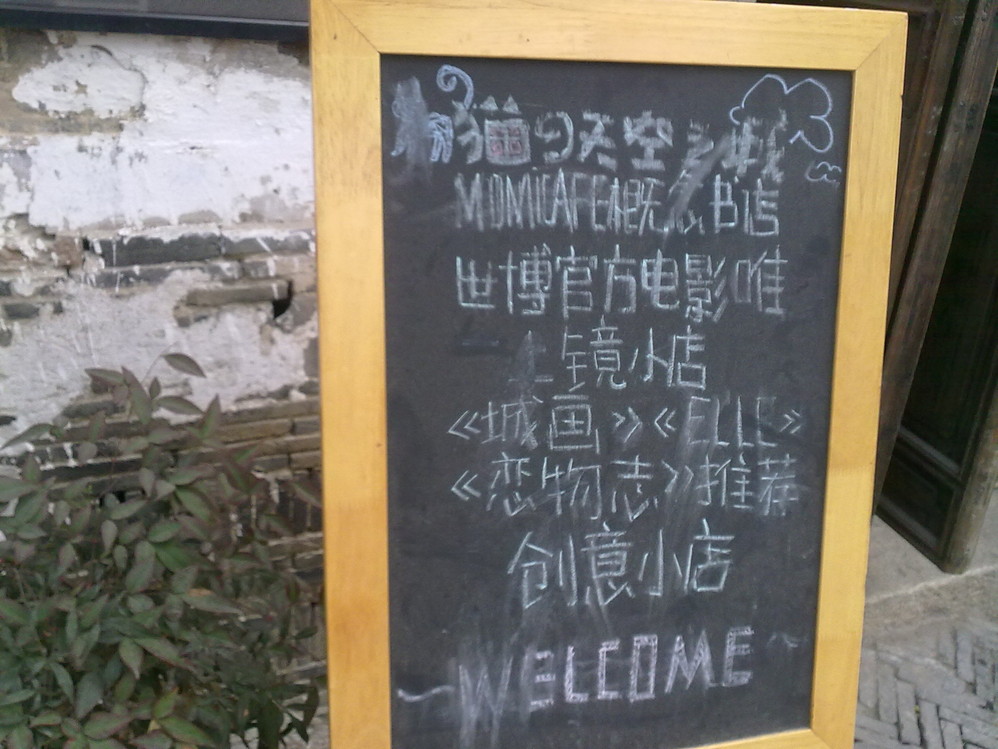 猫的天空之城
MOMICAFE概念书店
世博官方电影唯
一上镜小店
《城画》《ELLE》
《恋物志》推荐
创意小店
~WELCOME~